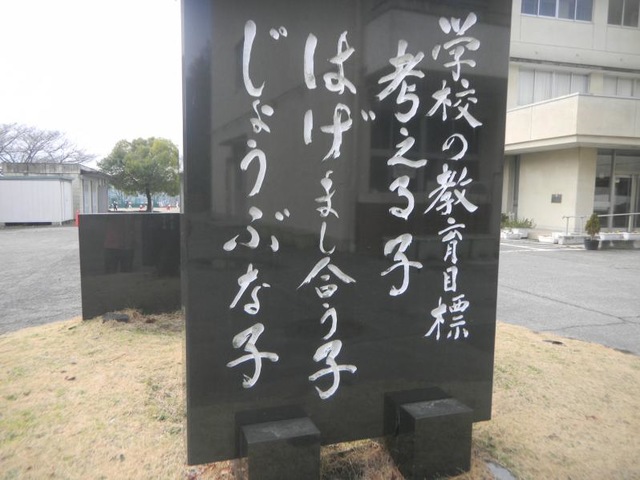 学校の教育目標
考える子
はげまし合う子
じょうぶな子